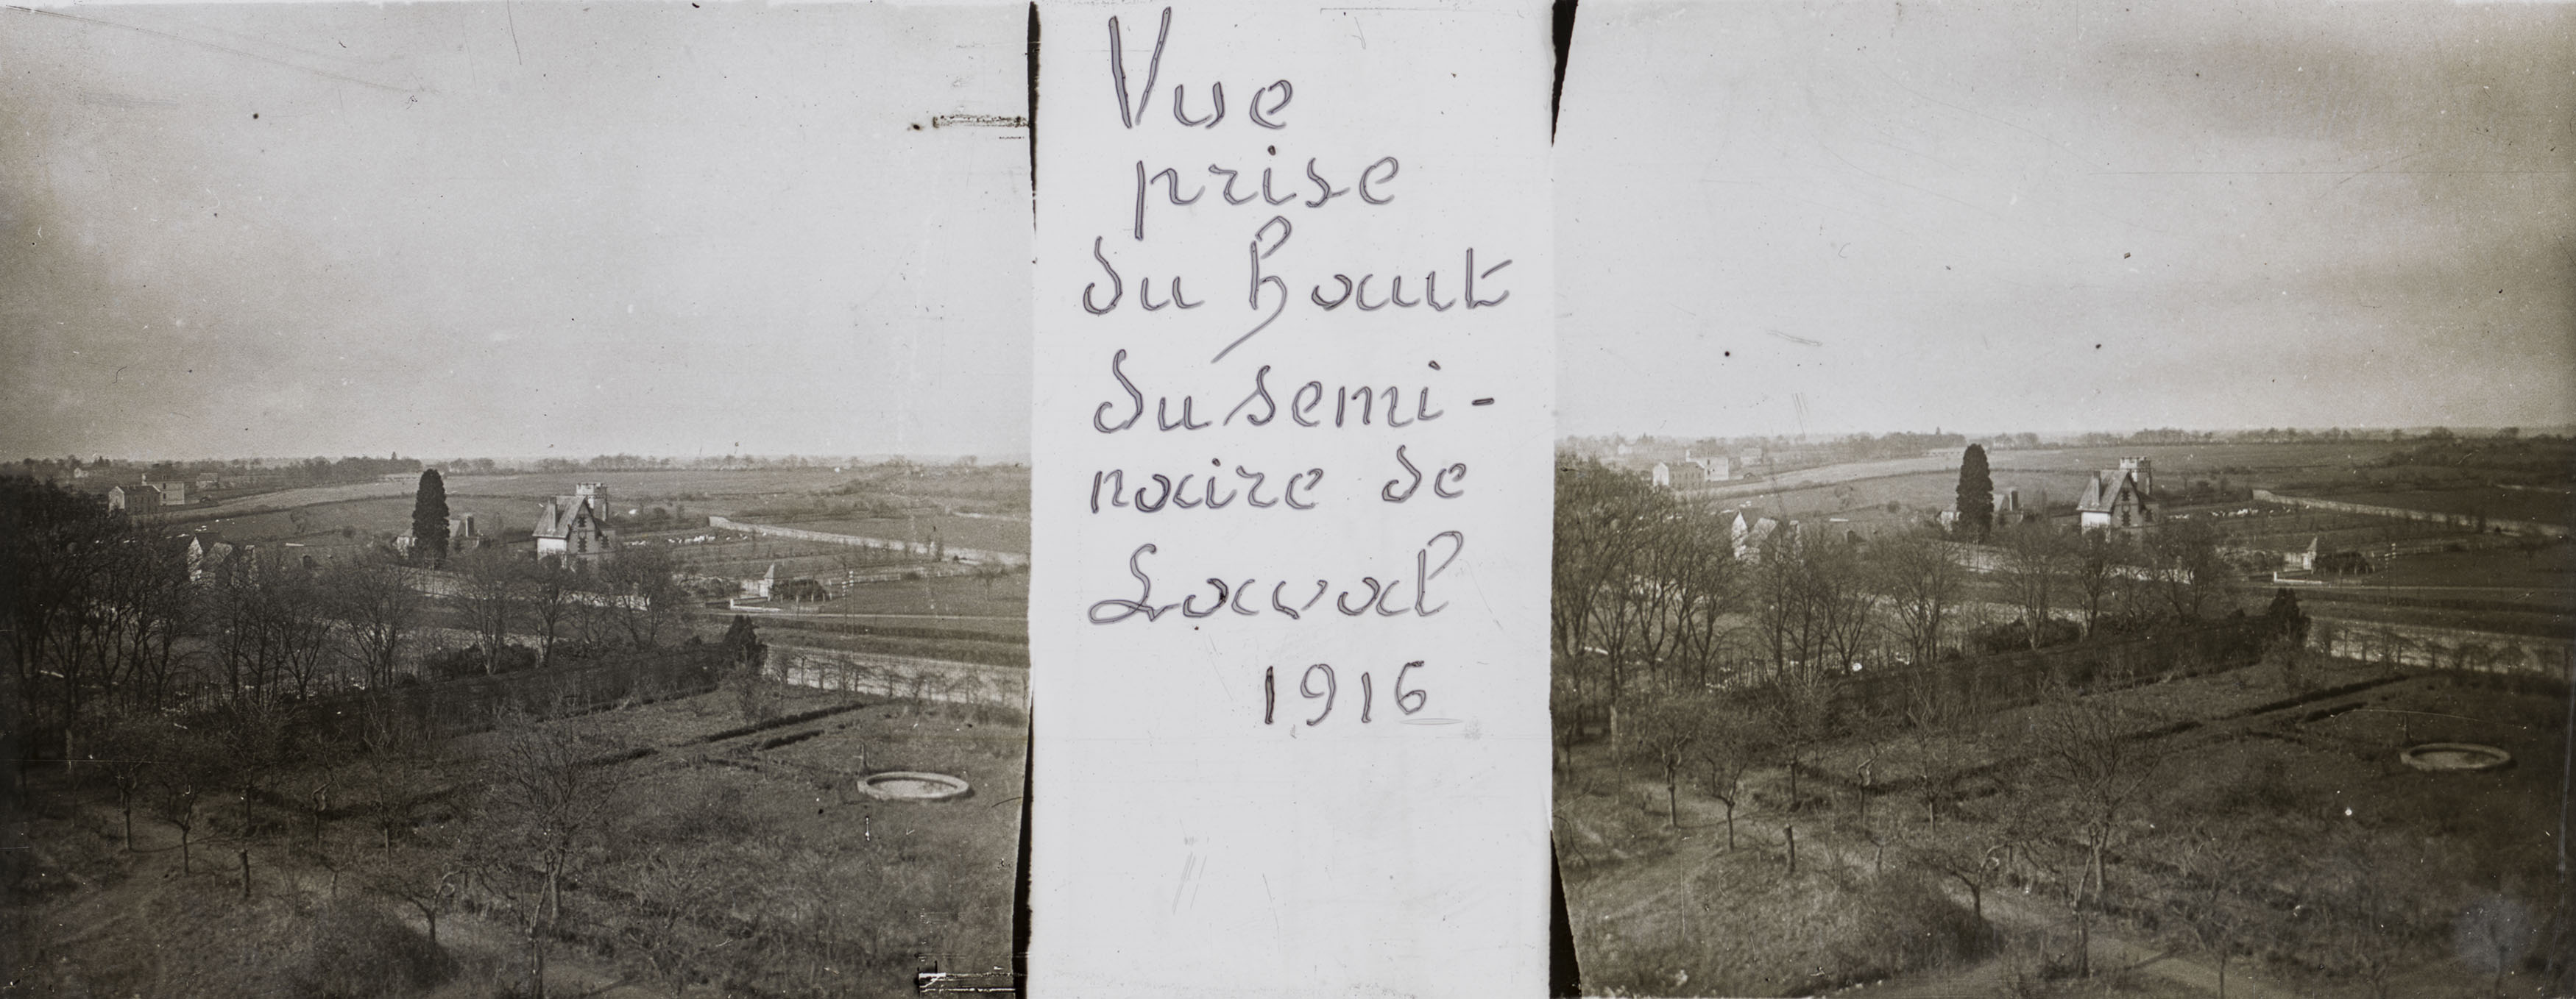 Vue
prise
du haut
du semi-
naire de
Laval
1916